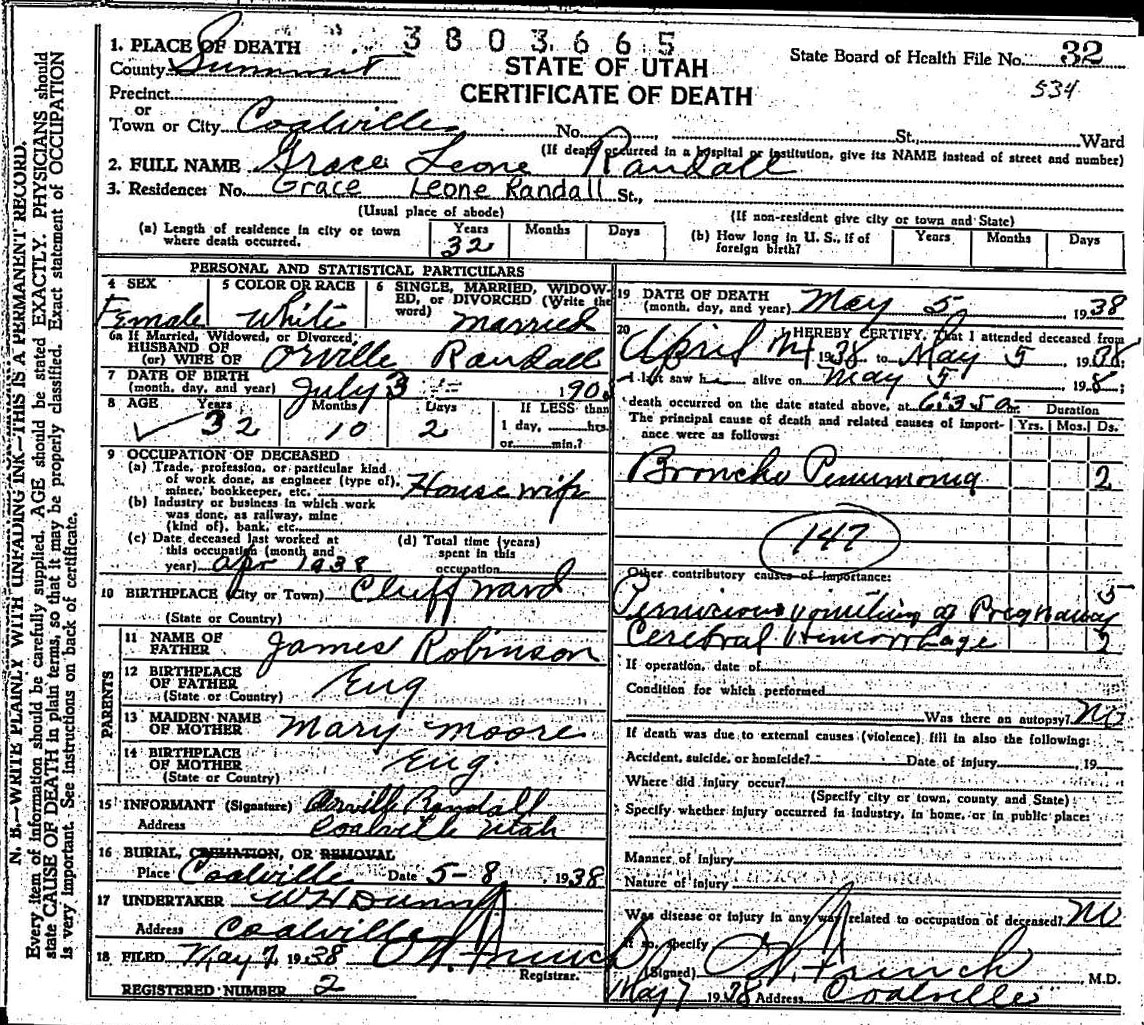 3803665
1. PLACE OF DEATH
STATE OF UTAH
State Board of Health File No. 32
County Summit
CERTIFICATE OF DEATH
534
Precinct
or
Town or City Coalville No. St., Ward
(If death occurred in a hospital or institution, give its NAME instead of street and number)
2. FULL NAME Grace Leone Randall
3. Residence: No. Grace Leone Randall St.,
(Usual place of abode) (If non-resident give city or town and State)
(a) Length of residence in city or town where death occurred. Years 32 Months Days
(b) How long in U. S., if of foreign birth? Years Months Days
PERSONAL AND STATISTICAL PARTICULARS
4 SEX Female
5 COLOR OR RACE White
6 SINGLE, MARRIED, WIDOWED, or DIVORCED (Write the word) married
6a If Married, Widowed, or Divorced,
HUSBAND OF
(or) WIFE OF Orville Randall
7 DATE OF BIRTH
(month, day, and year) July 3 190
8 AGE Years 32 Months 10 Days 2 If LESS than 1 day, hrs. or min.?
9 OCCUPATION OF DECEASED
(a) Trade, profession, or particular kind
of work done, as engineer (type of),
miner, bookkeeper, etc. House wife
(b) Industry or business in which work
was done, as railway, mine
(kind of), bank, etc.
(c) Date deceased last worked at
this occupation (month and
year) apr 1938
(d) Total time (years)
spent in this
occupation
10 BIRTHPLACE (City or Town) Cluff ward
(State or Country)
PARENTS
11 NAME OF
FATHER James Robinson
12 BIRTHPLACE
OF FATHER Eng
(State or Country)
13 MAIDEN NAME
OF MOTHER Mary Moore
14 BIRTHPLACE
OF MOTHER Eng.
(State or Country)
15 INFORMANT (Signature) Orville Randall
Address Coalville Utah
16 BURIAL, CREMATION, OR REMOVAL
Place Coalville Date 5-8 1938
17 UNDERTAKER W H Dunn
Address Coalville
18 FILED May 7, 1938
Registrar.
REGISTERED NUMBER 2
19 DATE OF DEATH
(month, day, and year) May 5 1938
20 I HEREBY CERTIFY, That I attended deceased from
April 1938 to May 5 1938
I last saw h alive on May 5 19 8;
death occurred on the date stated above, at 6:35 a m. Duration
The principal cause of death and related causes of importance were as follows: Yrs. Mos. Ds.
Broncho Pneumonia 2
147
Other contributory causes of importance:
Pernicious vomiting of Pregnancy 5
Cerebral Hemorrhage 2
If operation, date of
Condition for which performed
Was there an autopsy? No
If death was due to external causes (violence) fill in also the following:
Accident, suicide, or homicide? Date of injury 19
Where did injury occur?
(Specify city or town, county and State)
Specify whether injury occurred in industry, in home, or in public place:
Manner of injury
Nature of injury
Was disease or injury in any way related to occupation of deceased? No
If so, specify
(Signed) M.D.
May 7 1938 Address Coalville
N. B.—WRITE PLAINLY WITH UNFADING INK—THIS IS A PERMANENT RECORD.
Every item of information should be carefully supplied. AGE should be stated EXACTLY. PHYSICIANS should
state CAUSE OF DEATH in plain terms, so that it may be properly classified. Exact statement of OCCUPATION
is very important. See instructions on back of certificate.